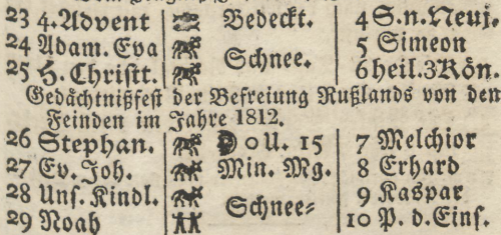 23 4. Advent Bedeckt. 4 S. n. Neuj.
24 Adam. Eva Schnee. 5 Simeon
25 H. Christt. 6 heil. 3 Kön.
Gedächtnißfest der Befreiung Rußlands von den
Feinden im Jahre 1812.
26 Stephan. 0 U. 15 7 Melchior
27 Ev. Joh. Min. Mg. 8 Erhard
28 Uns. Kindl. Schnee= 9 Kaspar
29 Noah 10 P. d. Eins.